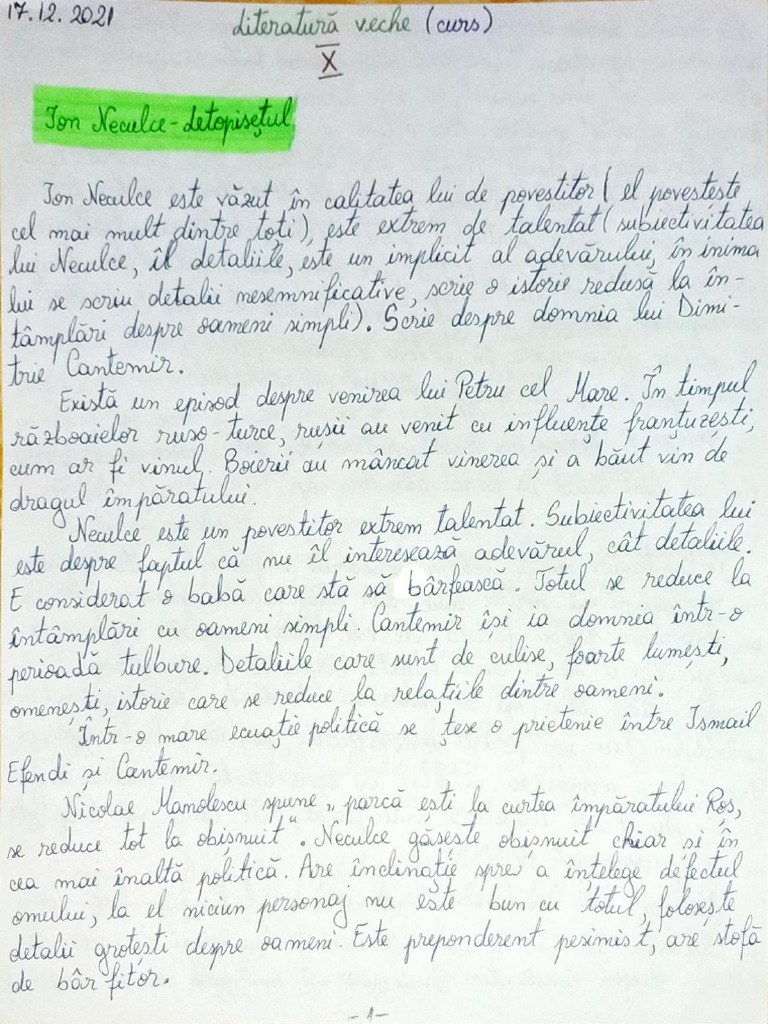 17.12.2021
Literatură veche (curs)
X
Ion Neculce - Letopisețul
Ion Neculce este văzut în calitatea lui de povestitor (el povestește
cel mai mult dintre toți), este extrem de talentat (subiectivitatea
lui Neculce, îl detaliile, este un implicit al adevărului, în inima
lui se scriu detalii nesemnificative, scrie o istorie redusă la în-
tâmplări despre oameni simpli). Scrie despre domnia lui Dimi-
trie Cantemir.
Există un episod despre venirea lui Petru cel Mare. În timpul
războaielor ruso-turce, rușii au venit cu influențe franțuzești,
cum ar fi vinul. Boierii au mâncat vinerea și a băut vin de
dragul împăratului.
Neculce este un povestitor extrem talentat. Subiectivitatea lui
este despre faptul că nu îl interesează adevărul, cât detaliile.
E considerat o babă care stă să bârfească. Totul se reduce la
întâmplări cu oameni simpli. Cantemir își ia domnia într-o
perioadă tulbure. Detaliile care sunt de culise, foarte lumești,
omenești, istorie care se reduce la relațiile dintre oameni.
Într-o mare ecuație politica se țese o prietenie între Ismail
Efendi și Cantemir.
Nicolae Manolescu spune „parcă ești la curtea împăratului Roș,
se reduce tot la obișnuit". Neculce găsește obișnuit chiar și în
cea mai înaltă politică. Are înclinație spre a înțelege defectul
omului, la el niciun personaj nu este bun cu totul, folosește
detalii grotești despre oameni. Este preponderent pesimist, are stofă
de bârfitor.
-1-